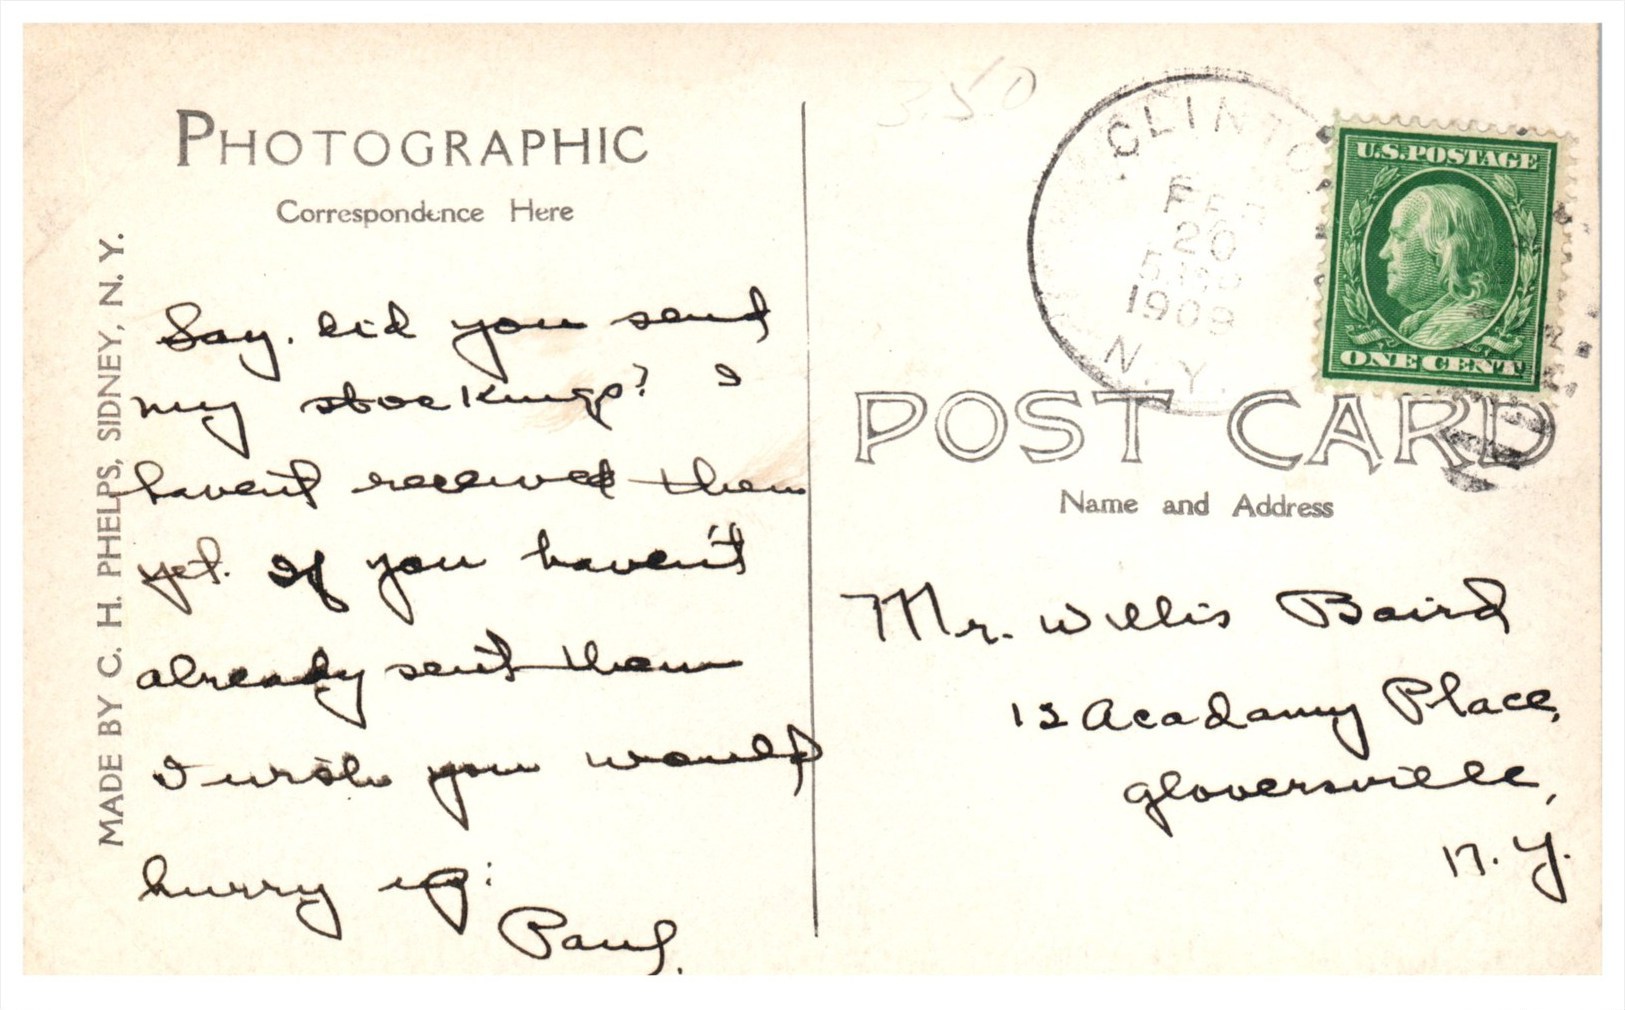 PHOTOGRAPHIC
Correspondence Here
MADE BY C. H. PHELPS, SIDNEY, N. Y.
Say. did you send
my stockings? I
haven't received them
yet. If you haven't
already sent them
I wish you would
hurry up:
Paul.
3.50
CLINTO
FEB
20
1909
N. Y.
U.S. POSTAGE
ONE CENT
POST CARD
Name and Address
Mr. Willis Baird
12 Acadamy Place,
Gloversville,
N. Y.